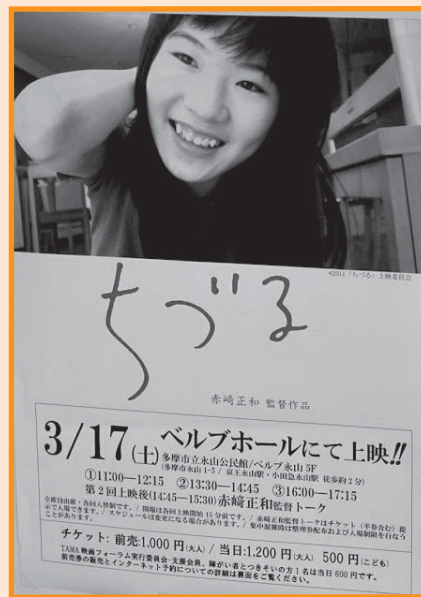 ©2011「ちづる」上映委員会
ちづる
赤﨑正和 監督作品
3/17(土) ベルブホールにて上映!!
多摩市立永山公民館/ベルブ永山 5F
(多摩市永山 1-5 / 京王永山駅・小田急永山駅 徒歩約2分)
①11:00―12:15 ②13:30―14:45 ③16:00―17:15
第2回上映後(14:45―15:30)赤﨑正和監督トーク
全席自由席・各回入替制です。/ 開場は各回上映開始 15 分前です。/ 赤﨑正和監督トークはチケット(半券含む)提
示で入場できます。/ スケジュールは変更になる場合があります。/ 集中混雑時は整理券配布および入場制限を行なう
ことがあります。
チケット: 前売:1,000 円(大人) / 当日:1,200 円(大人) 500 円(こども)
TAMA 映画フォーラム実行委員会・支援会員、障がい者とつきそいの方1名は当日 600 円です。
前売券の販売とインターネット予約についての詳細は裏面をご覧ください。